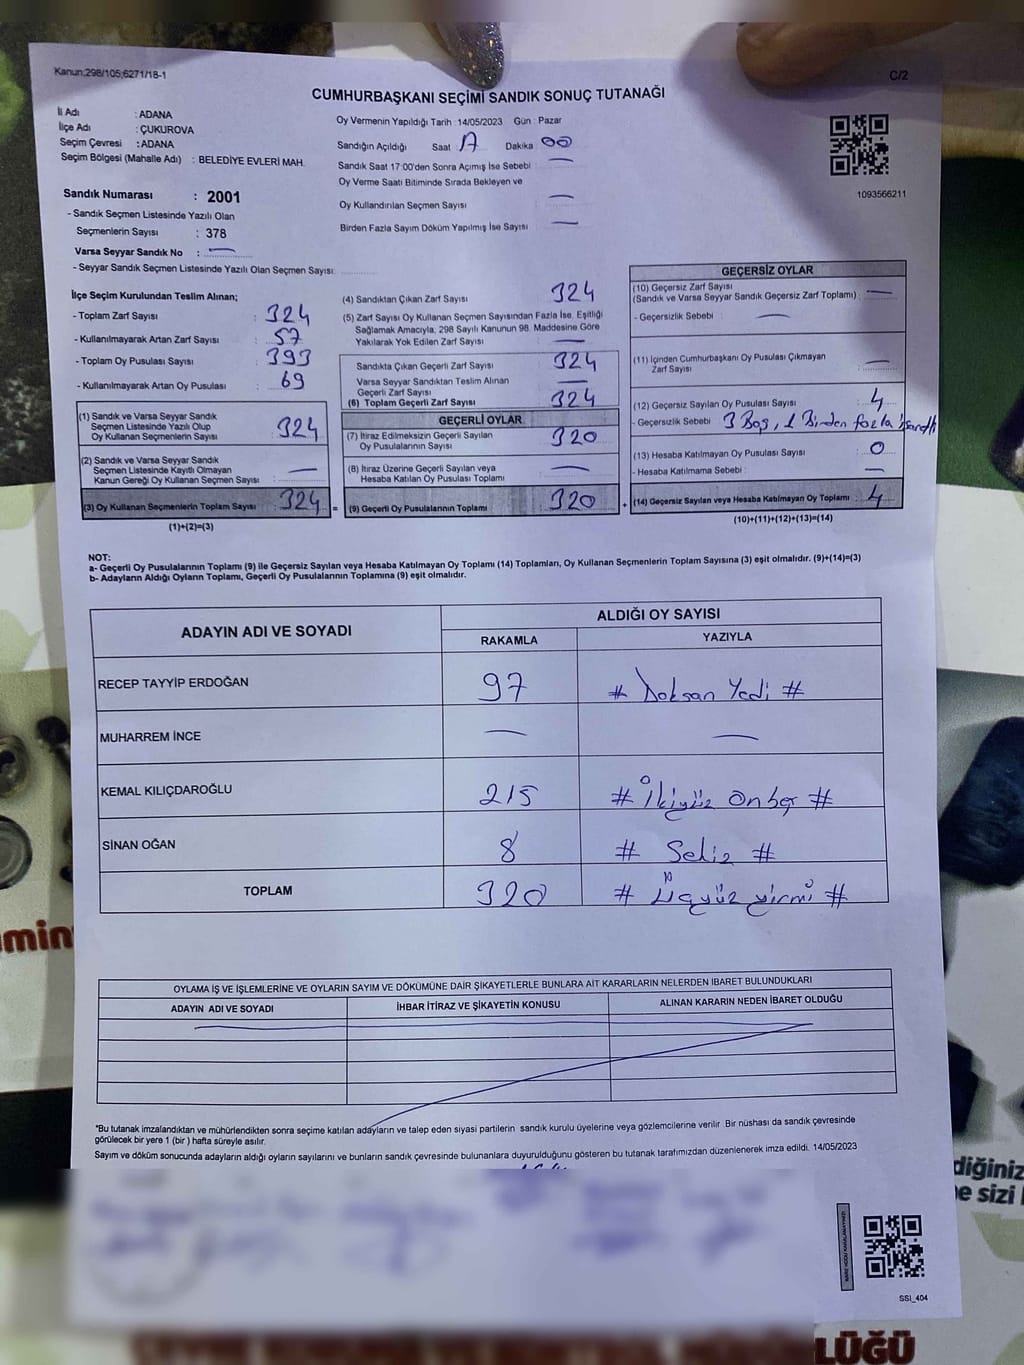 Kanun;298/105;6271/18-1
C/2
CUMHURBAŞKANI SEÇİMİ SANDIK SONUÇ TUTANAĞI
İl Adı : ADANA
İlçe Adı : ÇUKUROVA
Seçim Çevresi : ADANA
Seçim Bölgesi (Mahalle Adı) : BELEDİYE EVLERİ MAH.
Sandık Numarası : 2001
- Sandık Seçmen Listesinde Yazılı Olan
Seçmenlerin Sayısı : 378
Varsa Seyyar Sandık No : —
- Seyyar Sandık Seçmen Listesinde Yazılı Olan Seçmen Sayısı:
Oy Vermenin Yapıldığı Tarih : 14/05/2023 Gün : Pazar
Sandığın Açıldığı Saat 17 Dakika 00
Sandık Saat 17:00'den Sonra Açımış İse Sebebi : —
Oy Verme Saati Bitiminde Sırada Bekleyen ve
Oy Kullandırılan Seçmen Sayısı : —
Birden Fazla Sayım Döküm Yapılmış İse Sayısı : —
1093566211
İlçe Seçim Kurulundan Teslim Alınan;
- Toplam Zarf Sayısı : 324
- Kullanılmayarak Artan Zarf Sayısı : 57
- Toplam Oy Pusulası Sayısı : 393
- Kullanılmayarak Artan Oy Pusulası : 69
(1) Sandık ve Varsa Seyyar Sandık
Seçmen Listesinde Yazılı Olup
Oy Kullanan Seçmenlerin Sayısı : 324
(2) Sandık ve Varsa Seyyar Sandık
Seçmen Listesinde Kayıtlı Olmayan
Kanun Gereği Oy Kullanan Seçmen Sayısı : —
(3) Oy Kullanan Seçmenlerin Toplam Sayısı : 324
(1)+(2)=(3)
(4) Sandıktan Çıkan Zarf Sayısı 324
(5) Zarf Sayısı Oy Kullanan Seçmen Sayısından Fazla İse, Eşitliği
Sağlamak Amacıyla, 298 Sayılı Kanunun 98. Maddesine Göre
Yakılarak Yok Edilen Zarf Sayısı : —
Sandıkta Çıkan Geçerli Zarf Sayısı 324
Varsa Seyyar Sandıktan Teslim Alınan
Geçerli Zarf Sayısı —
(6) Toplam Geçerli Zarf Sayısı 324
GEÇERLİ OYLAR
(7) İtiraz Edilmeksizin Geçerli Sayılan
Oy Pusulalarının Sayısı 320
(8) İtiraz Üzerine Geçerli Sayılan veya
Hesaba Katılan Oy Pusulası Toplamı —
= (9) Geçerli Oy Pusulalarının Toplamı 320 +
GEÇERSİZ OYLAR
(10) Geçersiz Zarf Sayısı
(Sandık ve Varsa Seyyar Sandık Geçersiz Zarf Toplamı) : —
- Geçersizlik Sebebi : —
(11) İçinden Cumhurbaşkanı Oy Pusulası Çıkmayan
Zarf Sayısı : —
(12) Geçersiz Sayılan Oy Pusulası Sayısı : 4
- Geçersizlik Sebebi : 3 Boş, 1 Birden fazla
(13) Hesaba Katılmayan Oy Pusulası Sayısı : 0
- Hesaba Katılmama Sebebi : —
(14) Geçersiz Sayılan veya Hesaba Katılmayan Oy Toplamı : 4
(10)+(11)+(12)+(13)=(14)
NOT:
a- Geçerli Oy Pusulalarının Toplamı (9) ile Geçersiz Sayılan veya Hesaba Katılmayan Oy Toplamı (14) Toplamları, Oy Kullanan Seçmenlerin Toplam Sayısına (3) eşit olmalıdır. (9)+(14)=(3)
b- Adayların Aldığı Oyların Toplamı, Geçerli Oy Pusulalarının Toplamına (9) eşit olmalıdır.
ADAYIN ADI VE SOYADI
ALDIĞI OY SAYISI
RAKAMLA YAZIYLA
RECEP TAYYİP ERDOĞAN 97 # Doksan Yedi #
MUHARREM İNCE — —
KEMAL KILIÇDAROĞLU 215 # İkiyüz Onbeş #
SİNAN OĞAN 8 # Sekiz #
TOPLAM 320 # Üçyüz yirmi #
OYLAMA İŞ VE İŞLEMLERİNE VE OYLARIN SAYIM VE DÖKÜMÜNE DAİR ŞİKAYETLERLE BUNLARA AİT KARARLARIN NELERDEN İBARET BULUNDUKLARI
ADAYIN ADI VE SOYADI İHBAR İTİRAZ VE ŞİKAYETİN KONUSU ALINAN KARARIN NEDEN İBARET OLDUĞU
"Bu tutanak imzalandıktan ve mühürlendikten sonra seçime katılan adayların ve talep eden siyasi partilerin sandık kurulu üyelerine veya gözlemcilerine verilir. Bir nüshası da sandık çevresinde
görülecek bir yere 1 (bir) hafta süreyle asılır.
Sayım ve döküm sonucunda adayların aldığı oyların sayılarını ve bunların sandık çevresinde bulunanlara duyurulduğunu gösteren bu tutanak tarafımızdan düzenlenerek imza edildi. 14/05/2023
SSI_404
diğiniz
sizi
LÜĞÜ